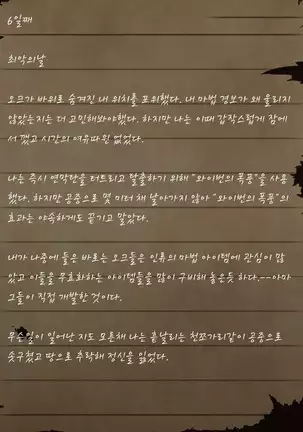 6일째
최악의날
오크가 바위로 숨겨진 내 위치를 포위했다. 내 마법 경보가 왜 울리지
않았는지는 더 고민해봐야했다. 하지만 나는 이때 갑작스럽게 잠에
서 깼고 시간의 여유따윈 없었다.
나는 즉시 연막탄을 터트리고 탈출하기 위해 "와이번의 폭풍"을 사용
했다. 하지만 공중으로 몇 미터 채 날아가지 않아 "와이번의 폭풍"의
효과는 야속하게도 끊기고 말았다.
내가 나중에 들은 바로는 오크들은 인류의 마법 아이템에 관심이 많
았고 이들을 무효화하는 아이템들을 많이 구비해 놓은듯 하다.--아마
그들이 직접 개발한 것이다.
무슨일이 일어난 지도 모른채 나는 흩날리는 천쪼가리같이 공중으로
솟구쳤고 땅으로 추락해 정신을 잃었다.